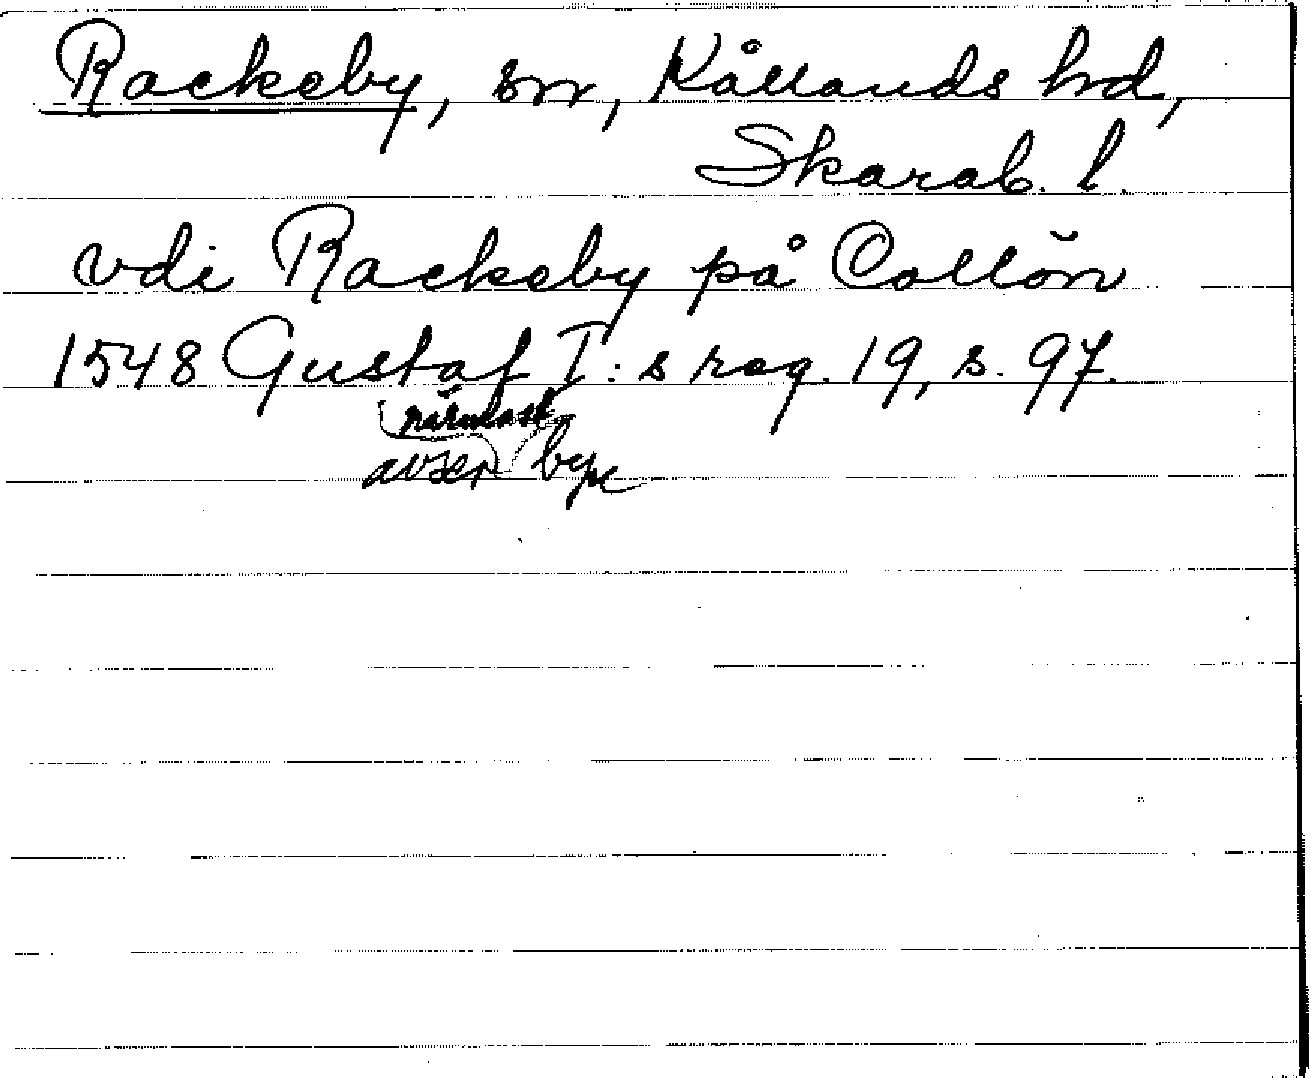 Rackeby, sn, Kållands hd,
Skarab. l.
vdi Rackeby på Collön
1548 Gustaf I:s reg. 19, s. 97.
närmast
avser byn